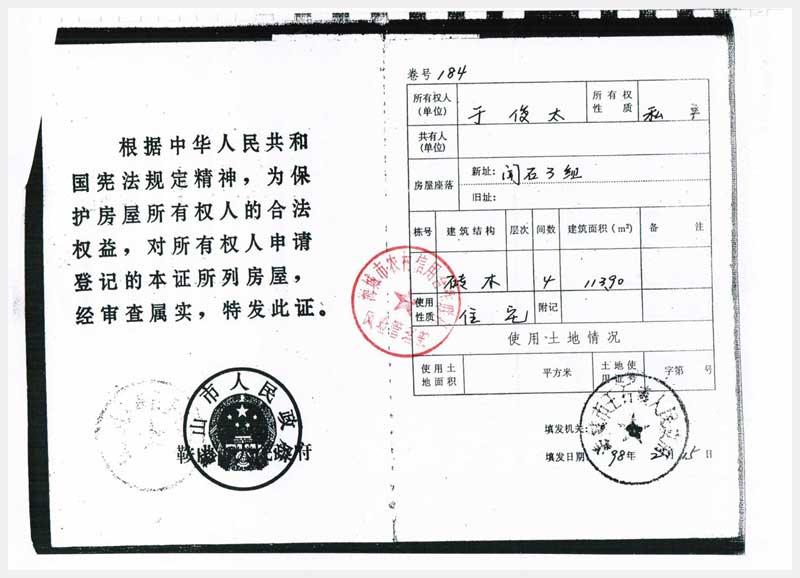 根据中华人民共和
国宪法规定精神，为保
护房屋所有权人的合法
权益，对所有权人申请
登记的本证所列房屋，
经审查属实，特发此证。
鞍山市人民政府
卷号 184
所有权人(单位) 于俊太 所有权性质 私
共有人(单位)
房屋座落 新址: 闫石3组
旧址:
栋号 建筑结构 层次 间数 建筑面积(m²) 备注
砖木 4 113.90
使用性质 住宅 附记
使用土地情况
使用土地面积 平方米 土地使用证号 字第 号
填发机关:
填发日期: 98年 月15日